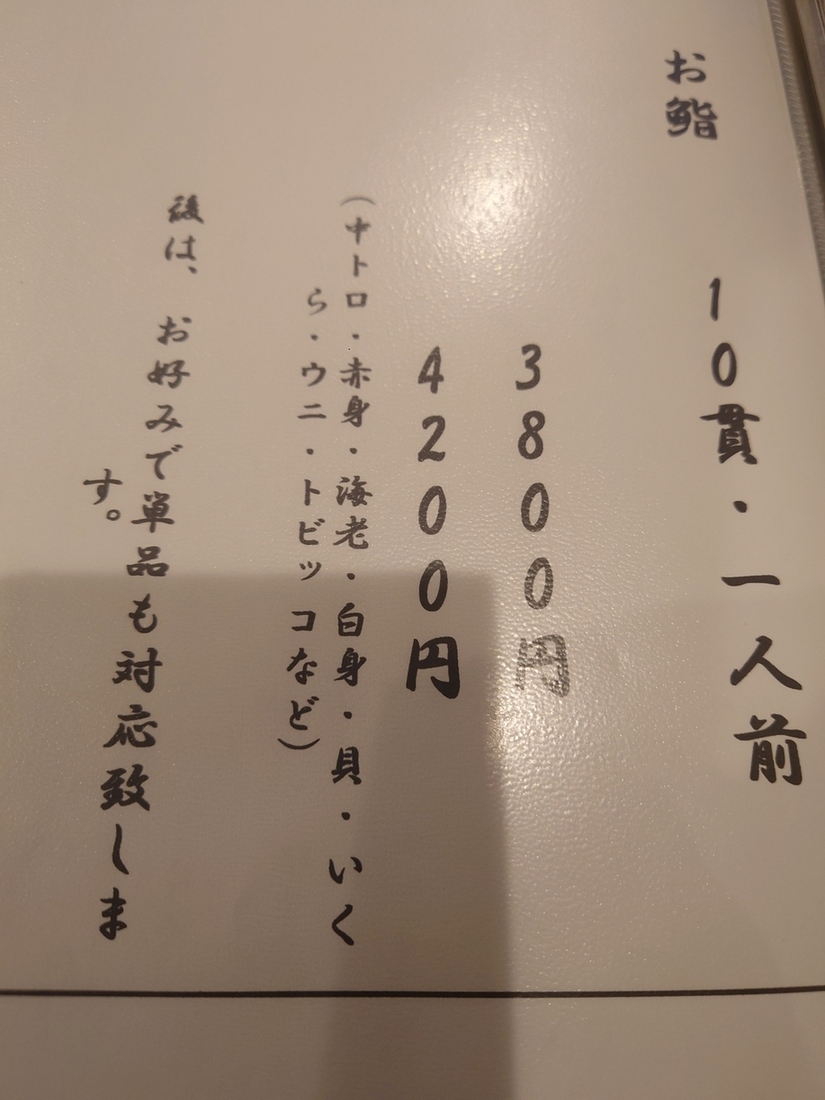 お鮨
10貫・一人前
3800円
4200円
(中トロ・赤身・海老・白身・貝・いく
ら・ウニ・トビッコなど)
後は、お好みで単品も対応致しま
す。